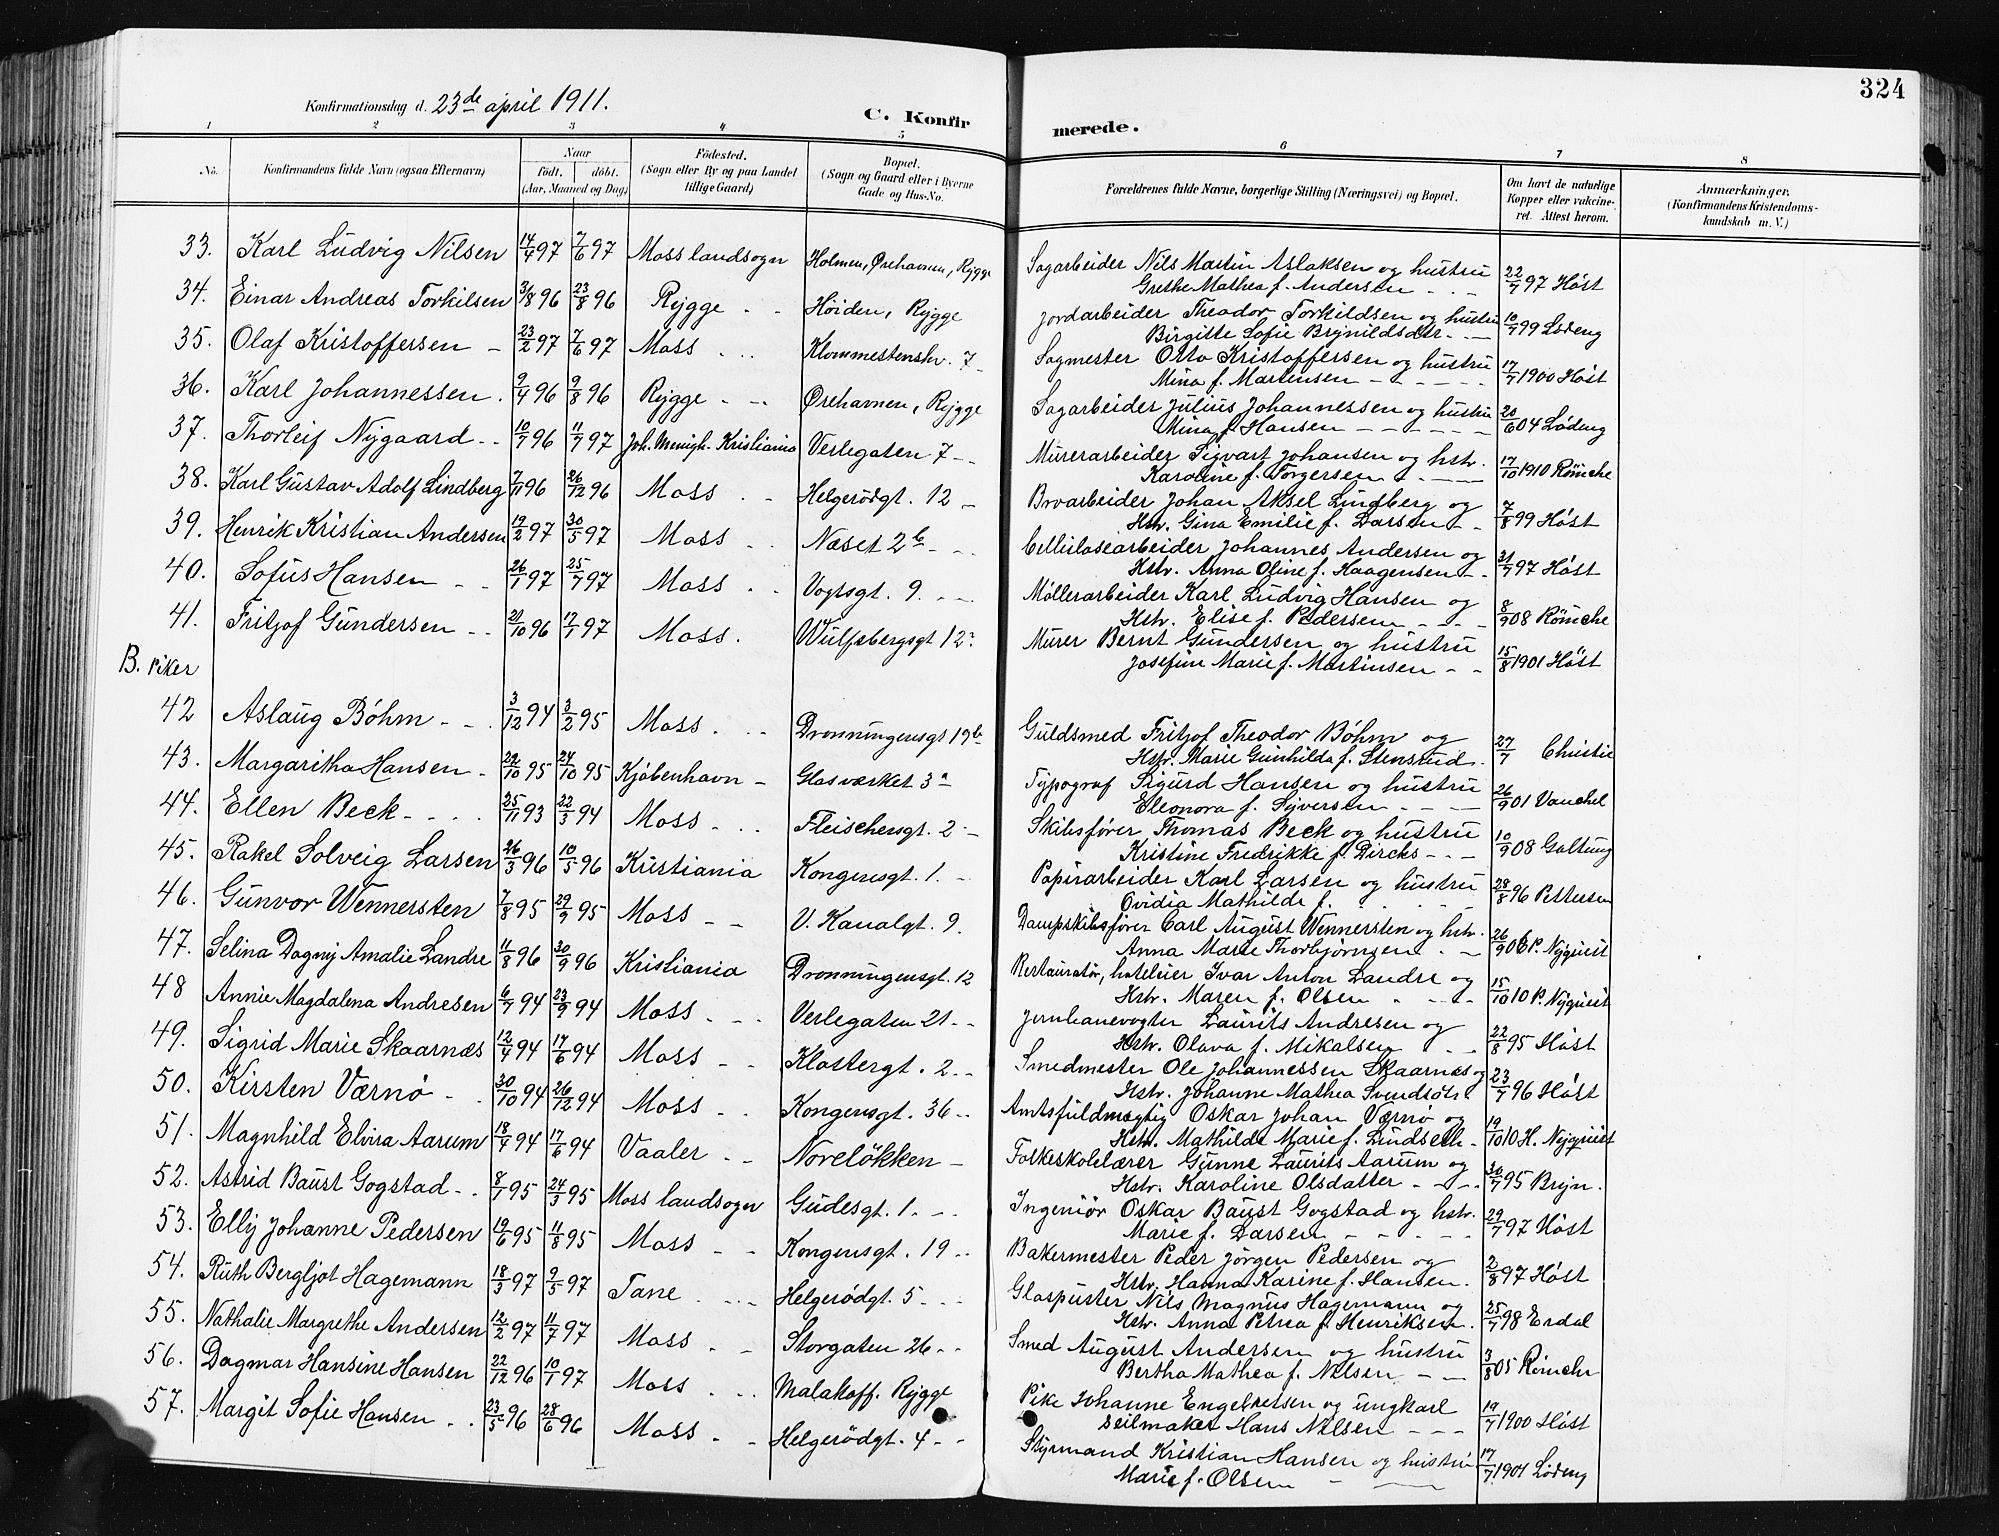 324
Konfirmationsdag d. 23de april 1911.
C. Konfirmerede.
1 2 3 4 5 6 7 8
No. Konfirmandens fulde Navn (ogsaa Efternavn) Naar født. døbt. (Aar, Maaned og Dag) Fødested. (Sogn eller By og paa Landet tillige Gaard) Bopæl. (Sogn og Gaard eller i Byerne Gade og Hus-No. Forældrenes fulde Navne, borgerlige Stilling (Næringsvei) og Bopæl. Om havt de naturlige Kopper eller vakcineret. Attest herom. Anmærkninger. (Konfirmandens Kristendomskundskab m. V.)
33. Karl Ludvig Nilsen 14/4 97 7/6 97 Moss landsogn Holmen, Ørehavnen, Rygge Sagarbeider Nils Martin Aslaksen og hustru
Grethe Mathea f. Andersen 22/7 97 Høst
34. Einar Andreas Torkilsen 3/8 96 23/8 96 Rygge Høiden, Rygge Jordarbeider Theodor Torkildsen og hustru
Birgitte Sofie Brynildsdtr. 10/7 99 Lødeng
35. Olaf Kristoffersen 23/2 97 7/6 97 Moss Klommestenskr. 7 Sagmester Otto Kristoffersen og hustru
Mina f. Martinsen 17/7 1900 Høst
36. Karl Johannessen 9/4 96 9/8 96 Rygge Ørehavnen, Rygge Sagarbeider Julius Johannessen og hustru
Mina f. Hansen 20/6 04 Lødeng
37. Thorleif Nygaard 10/7 96 11/7 97 Joh. Menigh. Kristiania Verlegaten 7 Murerarbeider Sigvart Johansen og hstr.
Karoline f. Torgersen 17/10 1910 Rømcke
38. Karl Gustav Adolf Lindberg 7/11 96 26/12 96 Moss Helgerødgt. 12 Brvarbeider Johan Aksel Lindberg og
Hstr. Gina Emilie f. Larsen 7/8 99 Høst
39. Henrik Kristian Andersen 19/2 97 30/5 97 Moss Næset 2b Cellulosearbeider Johannes Andersen og
Hstr. Anna Oline f. Haagensen 31/7 97 Høst
40. Sofus Hansen 26/1 97 25/7 97 Moss Vogtsgt. 9. Møllerarbeider Karl Ludvig Hansen og
Hstr. Elise f. Pedersen 8/9 08 Rømcke
41. Fritjof Gundersen 21/10 96 17/1 97 Moss. Wulfsbergsgt 12 Murer Bernt Gundersen og hustru
Josefine Marie f. Martinsen 15/8 1901 Høst
B. Piker
42 Aslaug Bøhm 3/12 94 3/2 95 Moss Dronningensgt 19b Guldsmed Fritjof Theodor Bøhm og
Hstr. Marie Gunhilda f. Stensrud. 27/7 Christie
43. Margaritha Hansen 22/10 95 24/10 95 Kjøbenhavn Glasværket 3a Typograf Sigurd Hansen og hustru
Eleonora f. Syversen 26/9 01 Vauchel
44. Ellen Beck 25/11 93 22/3 94 Moss Fleischersgt. 2 Skibsfører Thomas Beck og hustru
Kristine Fredrikke f. Dircks 10/9 08 Galtung
45. Rakel Solveig Larsen 26/3 96 10/5 96 Kristiania Kongensgt. 1. Papirarbeider Karl Larsen og hustru
Ovidia Mathilde f. 28/8 96 Pettersen
46. Gunvor Wennersten 7/8 95 29/9 95 Moss V. Kanalgt. 9. Dampskibsfører Carl August Wennersten og hstr.
Anna Marie Thorbjørnsen 26/9 06 P. Nyquist
47. Selina Dagny Amalie Landre 11/8 96 30/9 96 Kristiania Dronningensgt. 12 Restauratør, hoteleier Ivar Anton Landre og
Hstr. Maren f. Olsen 15/10 10 P. Nyquist
48 Annie Magdalena Andresen 6/7 94 23/9 94 Moss Verlegaten 21 Jernbanevogter Laurits Andresen og
Hstr. Olava f. Mikalsen 22/8 95 Høst
49. Sigrid Marie Skaarnæs 12/4 94 17/6 94 Moss Klostergt. 2 Smedmester Ole Johannessen Skaarnæs og
Hstr. Johanne Mathea Svendsdtr. 23/7 96 Høst
50. Kirsten Værnø 30/10 94 26/12 94 Moss Kongensgt. 36 Amtsfuldmægtig Oskar Johan Værnø og
Hstr. Mathilde Marie f. Lindseth 19/10 10 H. Nyquist
51. Magnhild Elvira Aarum 18/4 94 17/6 94 Vaaler Noreløkken Folkeskolelærer Gunne Laurits Aarum og
Hstr. Karoline Olsdatter 30/7 95 Bryn.
52. Astrid Baust Gogstad 8/1 95 24/3 95 Moss landsogn Gudesgt. 1. Ingeniør Oskar Baust Gogstad og hstr.
Marie f. Larsen 29/7 97 Høst
53. Elly Johanne Pedersen 19/6 95 11/8 95 Moss Kongensgt. 19 Bakermester Peder Jørgen Pedersen og
Hstr. Hanna Karine f. Hansen. 2/8 97 Høst
54. Ruth Bergljot Hagemann 18/3 97 9/5 97 Tane Helgerødgt. 5 Glaspuster Nils Magnus Hagemann og
Hstr. Anna Petrea f. Henriksen. 25/7 98 Erdal
55. Nathalie Margrethe Andersen 12/2 97 11/7 97 Moss Storgaten 26 Smed August Andersen og hustru
Bertha Mathea f. Nilsen 3/8 05 Rømcke
56. Dagmar Hansine Hansen 22/12 96 10/1 97 Moss Malakoff. Rygge Pike Johanne Engebretsen og ungkarl
Seilmaker Hans Nilsen 19/7 1900 Høst
57. Margit Sofie Hansen 23/5 96 28/6 96 Moss Helgerødgt. 4 Styrmand Kristian Hansen og hustru
Marie f. Olsen 17/7 1901 Lødeng